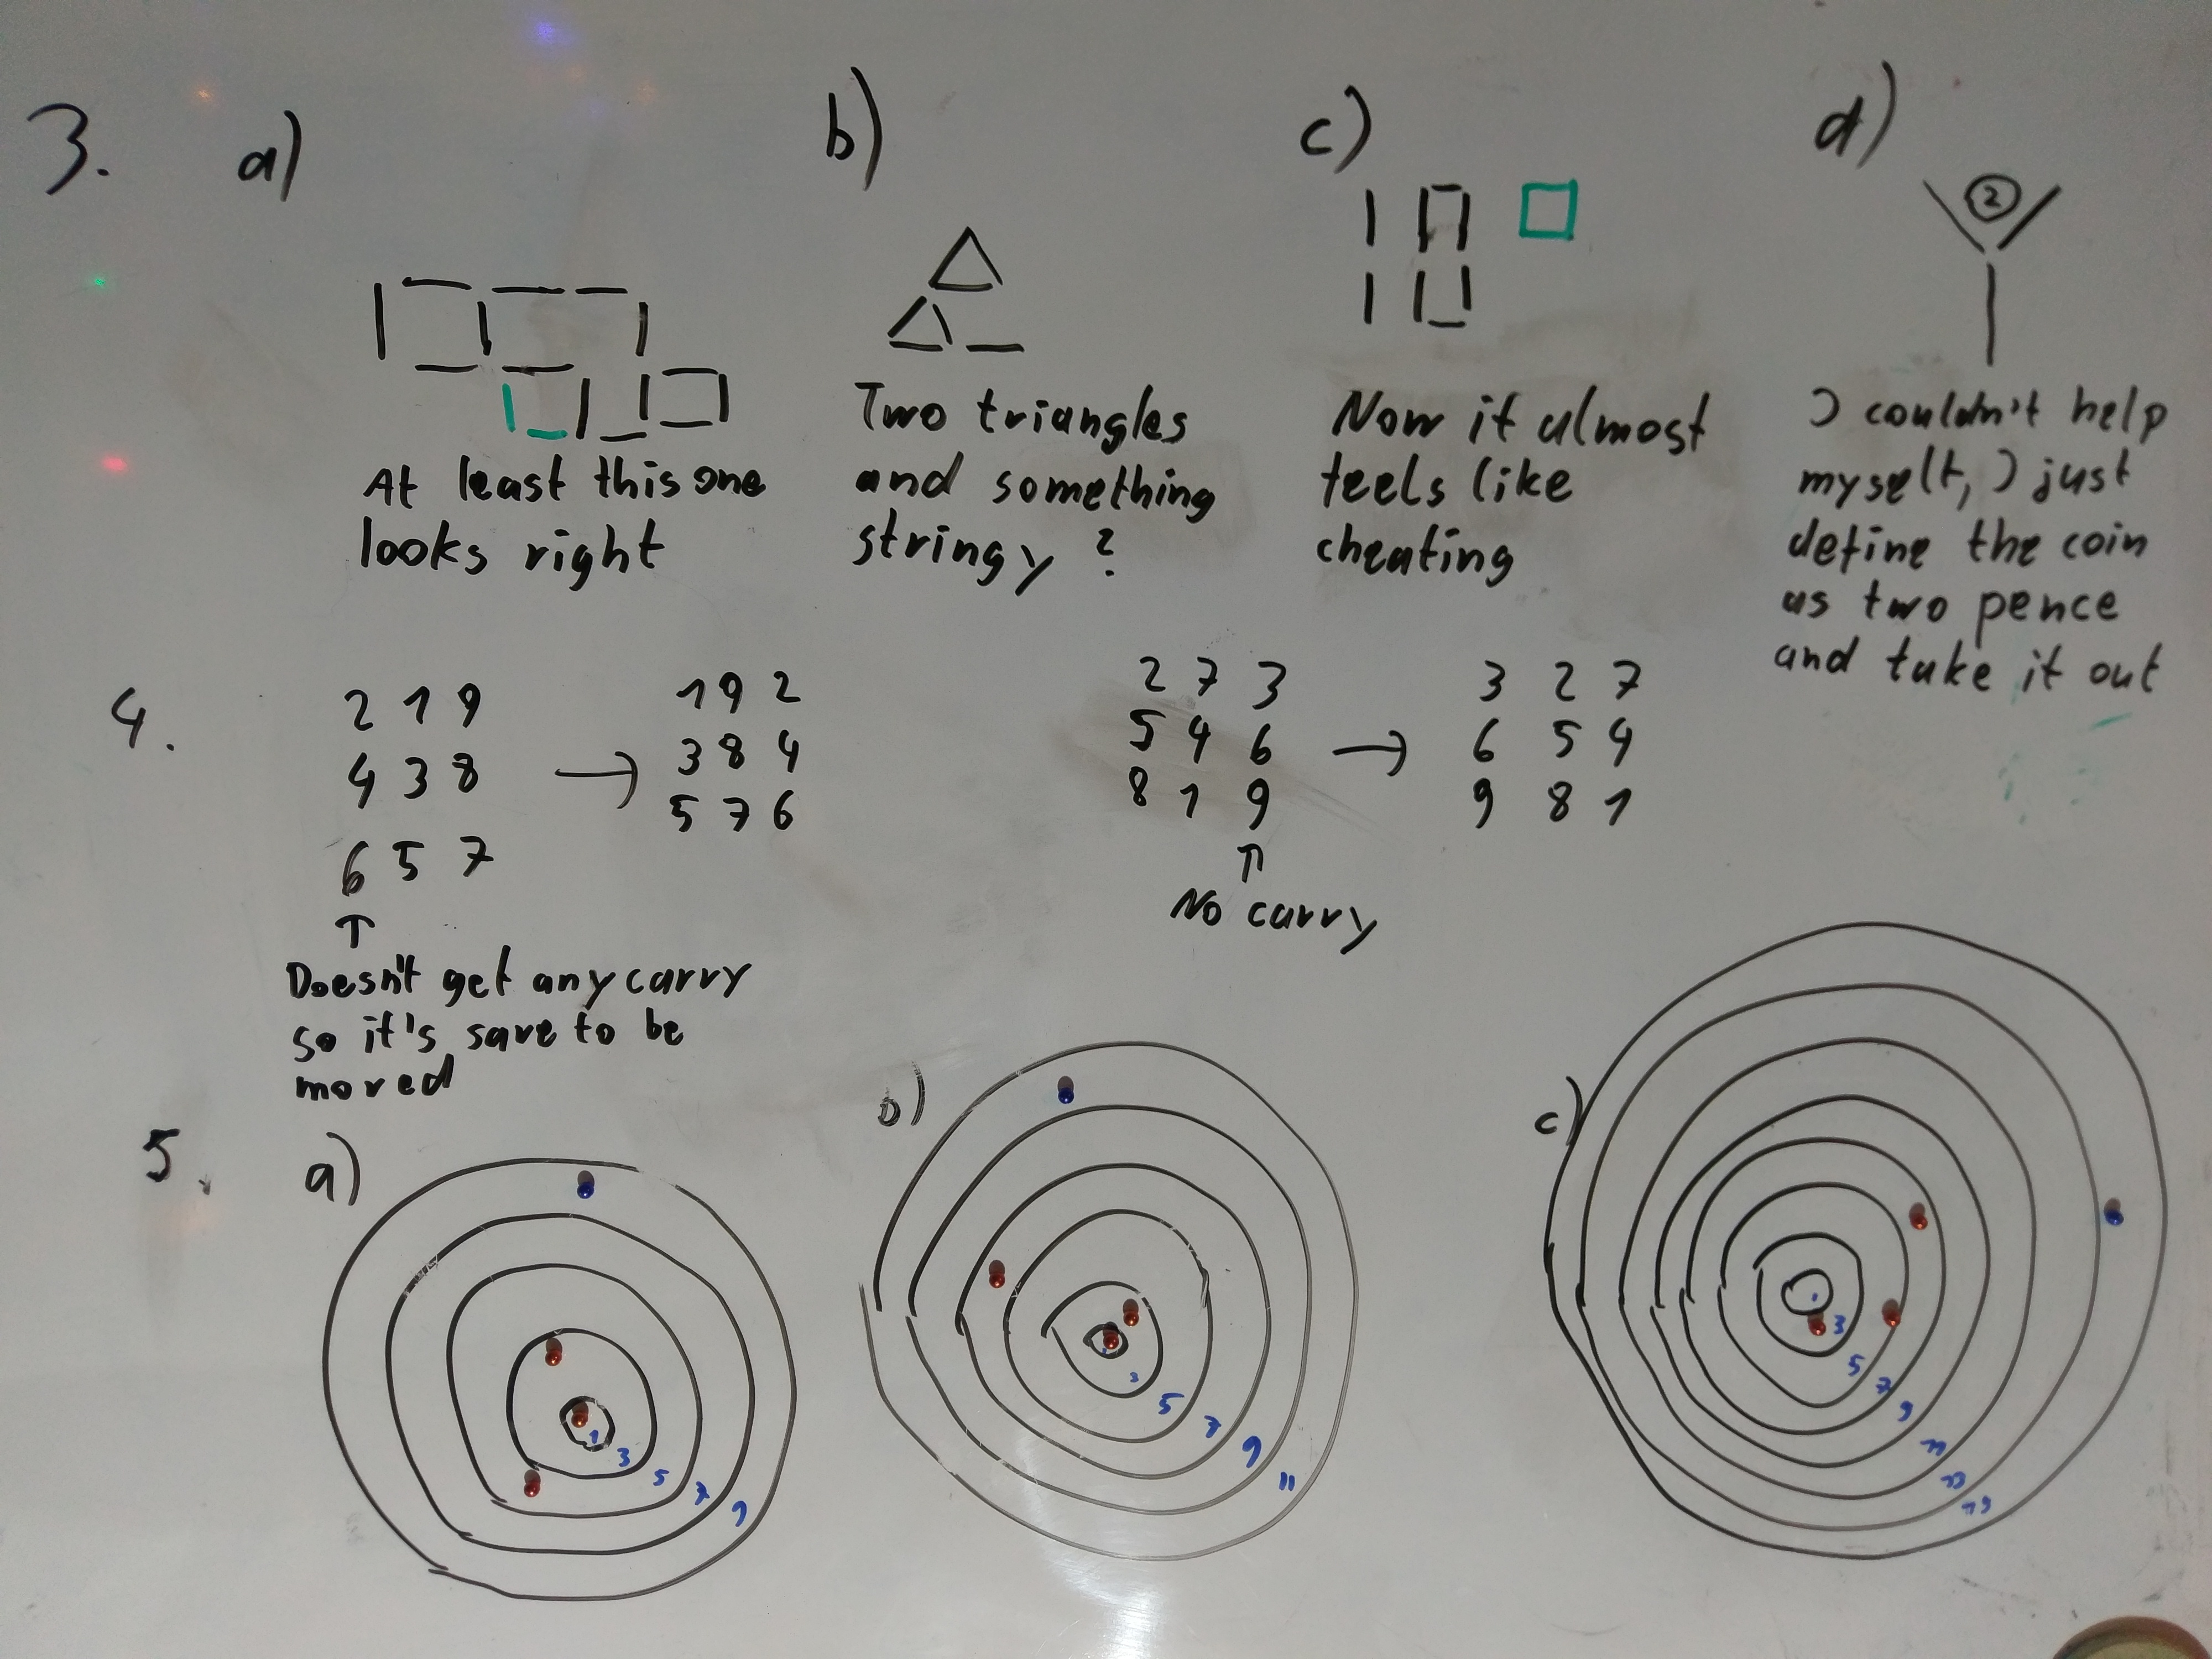 3. a) b) c) d)
2
At least this one
looks right
Two triangles
and something
stringy ?
Now it almost
feels like
cheating
I couldn't help
myself, I just
define the coin
as two pence
and take it out
4.
2 1 9
4 3 8 →
6 5 7
↑
1 9 2
3 8 4
5 7 6
Doesn't get any carry
so it's save to be
moved
2 7 3
5 4 6 →
8 1 9
↑
No carry
3 2 7
6 5 4
9 8 1
5. a)
1
3
5
7
9
b)
3
5
7
9
11
c)
3
5
7
9
11
13
15